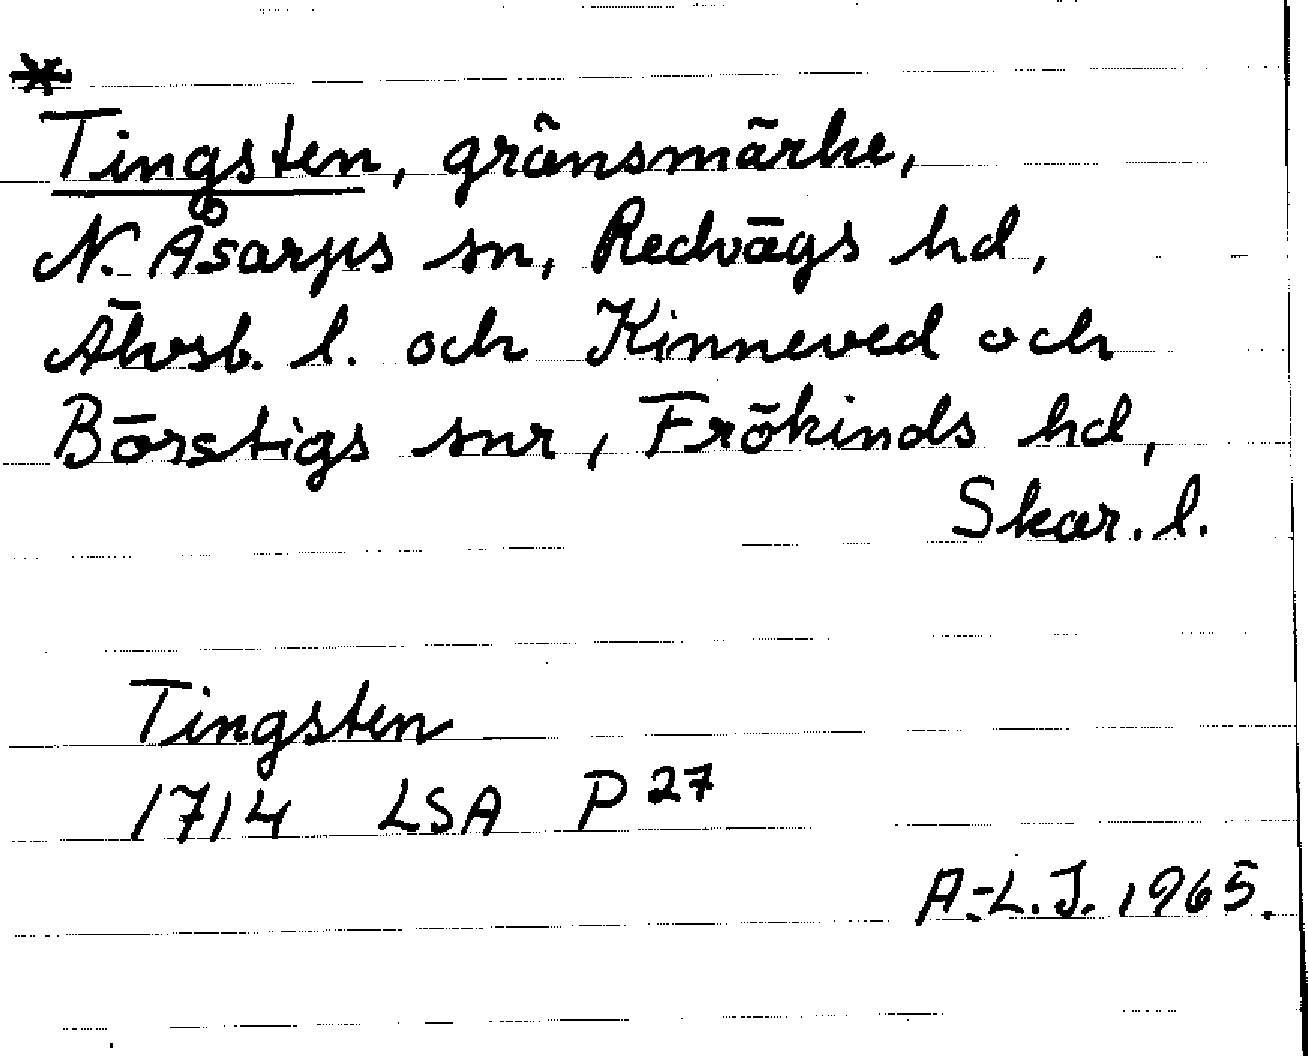 *
Tingsten, gränsmärke,
N. Åsarps sn, Redvägs hd,
Älvsb. l. och Kinneved och
Börstigs snr, Frökinds hd,
Skar. l.
Tingsten
1714 LSA P 27
A-L.J. 1965.